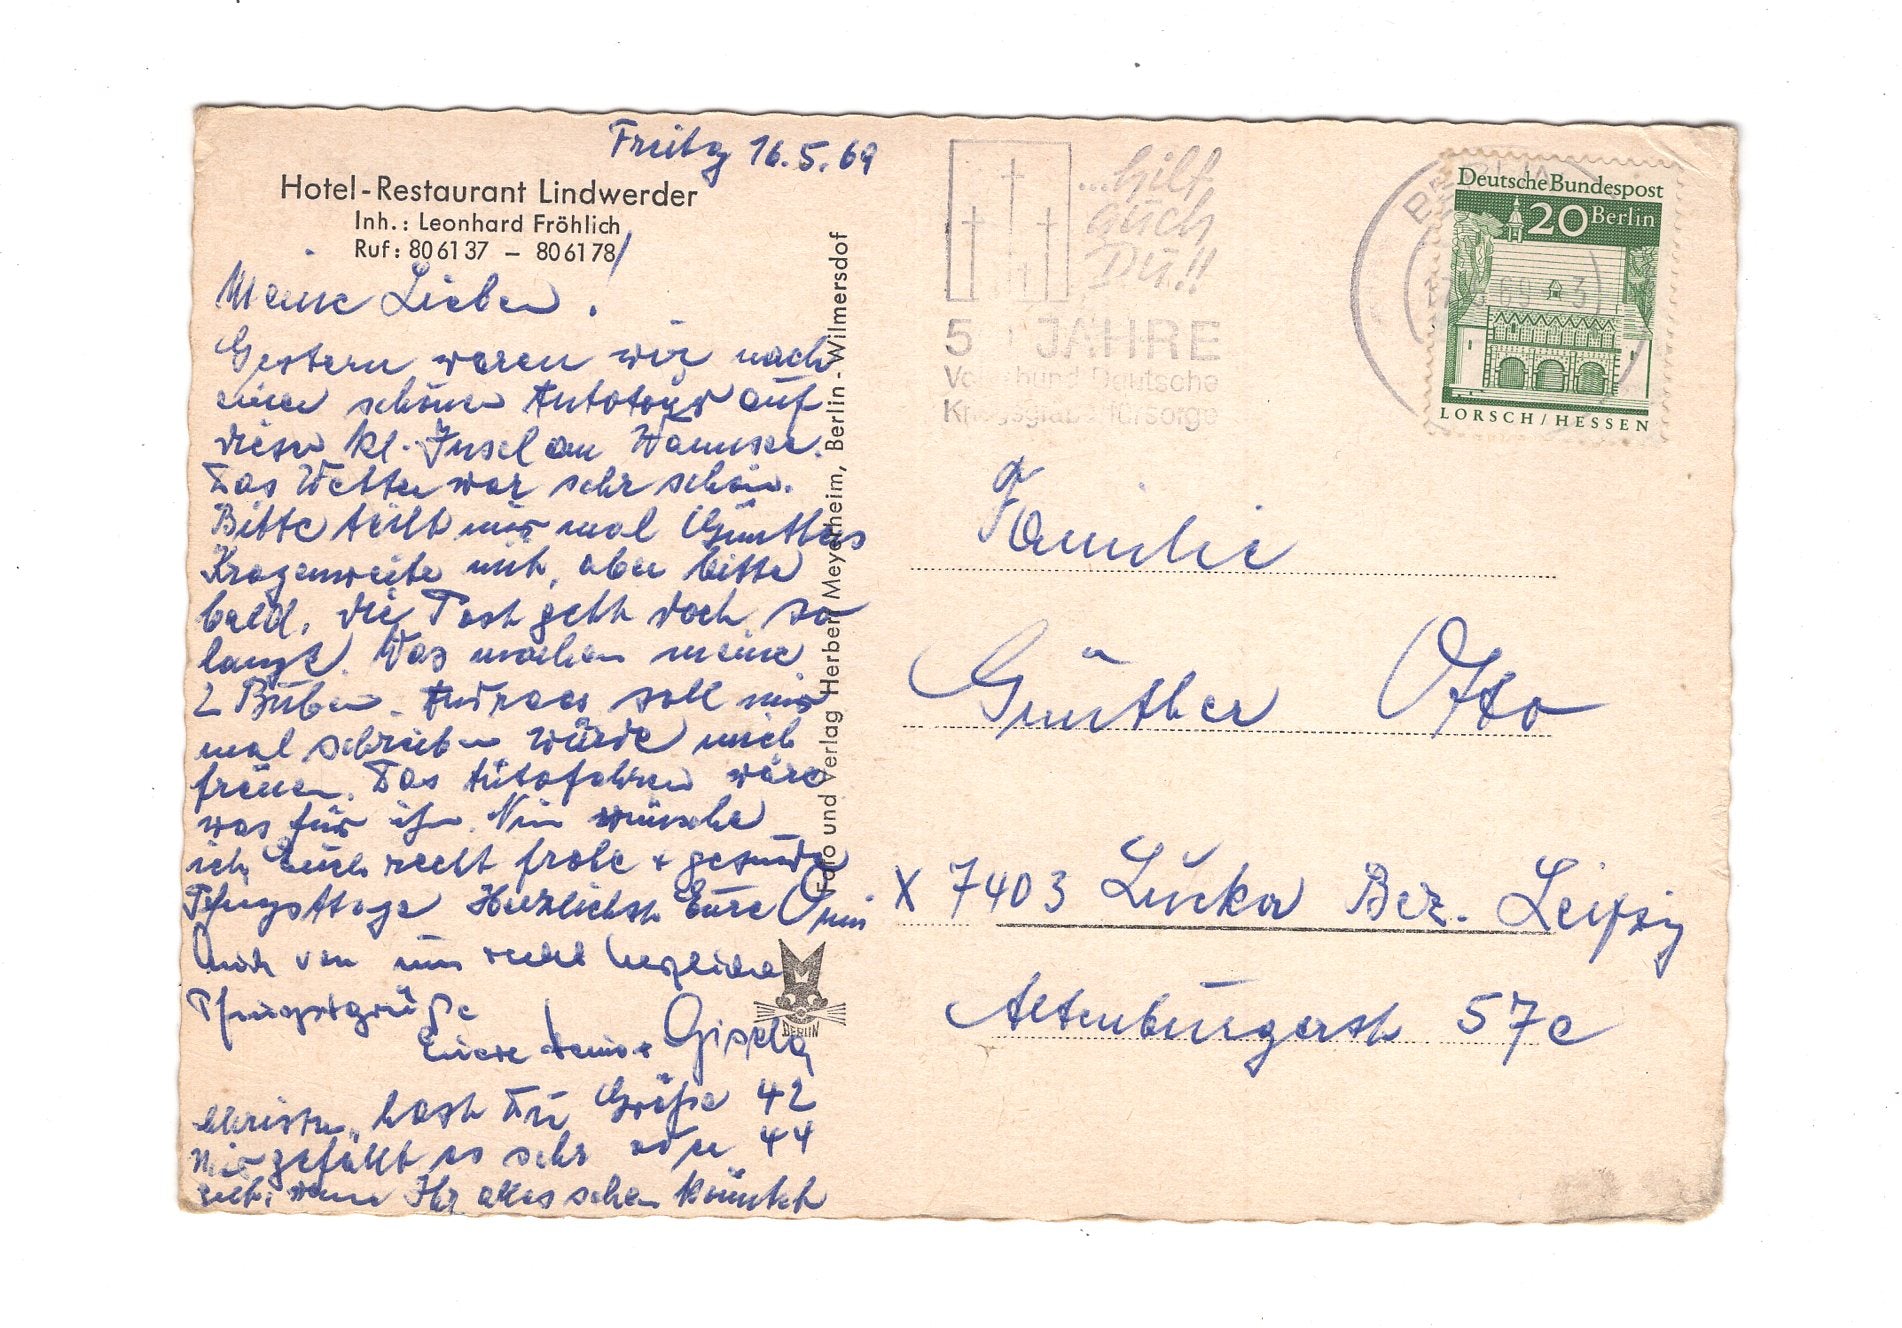 Freitg 16.5.69
Hotel-Restaurant Lindwerder
Inh.: Leonhard Fröhlich
Ruf: 80 61 37 – 80 61 78
Meine Lieben!
Gestern waren wir nach
einer schönen Autotour auf
dieser kl. Insel am Wannsee.
Das Wetter war sehr schön.
Bitte teilt mir mal Günthers
Kragenweite mit, aber bitte
bald, die Post geht doch so
lange. Was machen meine
2 Buben. Andreas soll mir
mal schreiben würde mich
freuen. Das Autofahren wäre
was für ihn. Nun wünsche
ich Euch recht frohe + gesunde
Pfingsttage Herzlichst Eure Omi
Auch von uns recht herzliche
Pfingstgrüße
Eure + Gisela
Christa, hast Du Größe 42
oder 44
Mir gefällt es sehr
wenn Ihr alles sehen könntet
Foto und Verlag Herbert Meyerheim, Berlin-Wilmersdorf
M
BERLIN
...hilf
auch
Du!!
50 JAHRE
Volksbund Deutsche
Kriegsgräberfürsorge
BERLIN
69
3
Deutsche Bundespost
20 Berlin
LORSCH/HESSEN
Familie
Günther Otto
X 7403 Lucka Bez. Leipzig
Altenburgerstr 57c